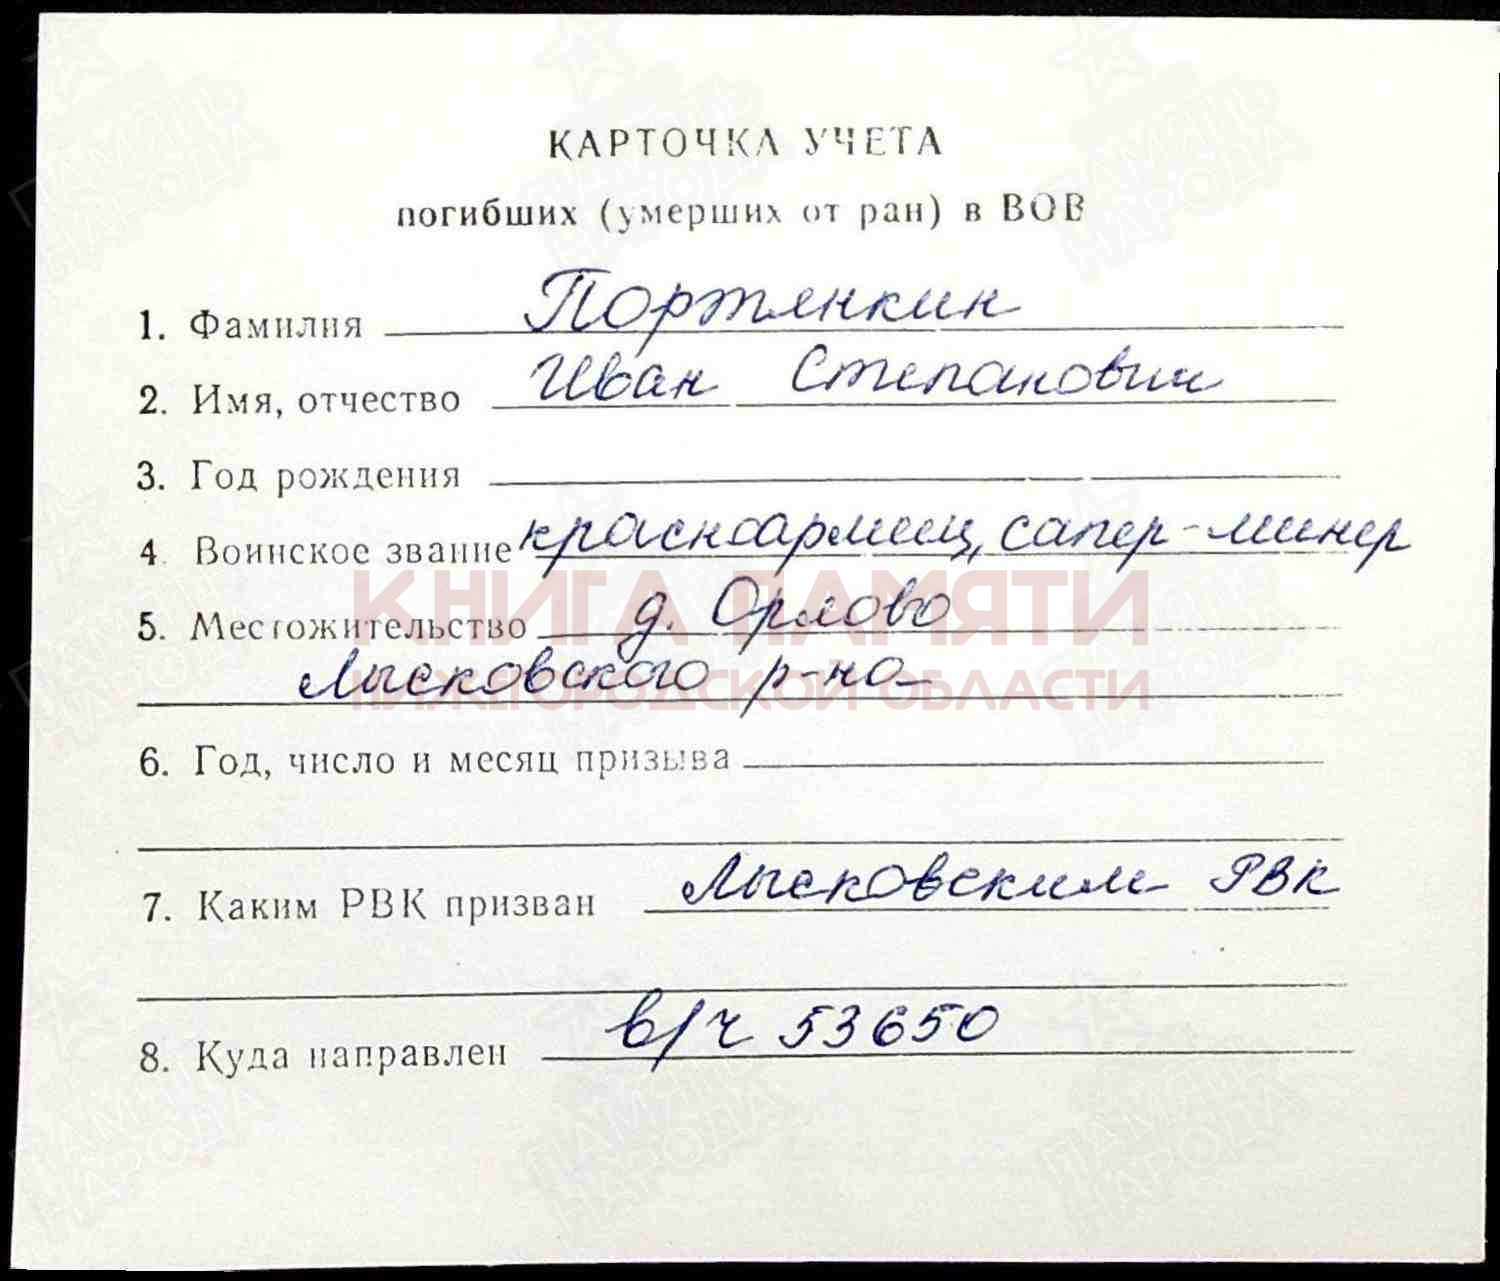 КАРТОЧКА УЧЕТА
погибших (умерших от ран) в ВОВ
1. Фамилия Портянкин
2. Имя, отчество Иван Степанович
3. Год рождения
4. Воинское звание красноармеец, сапер-минер
5. Местожительство д. Орлово
Лысковского р-на
6. Год, число и месяц призыва
7. Каким РВК призван Лысковским РВК
8. Куда направлен в/ч 53650
КНИГА ПАМЯТИ
НИЖЕГОРОДСКОЙ ОБЛАСТИ
ПАМЯТЬ НАРОДА